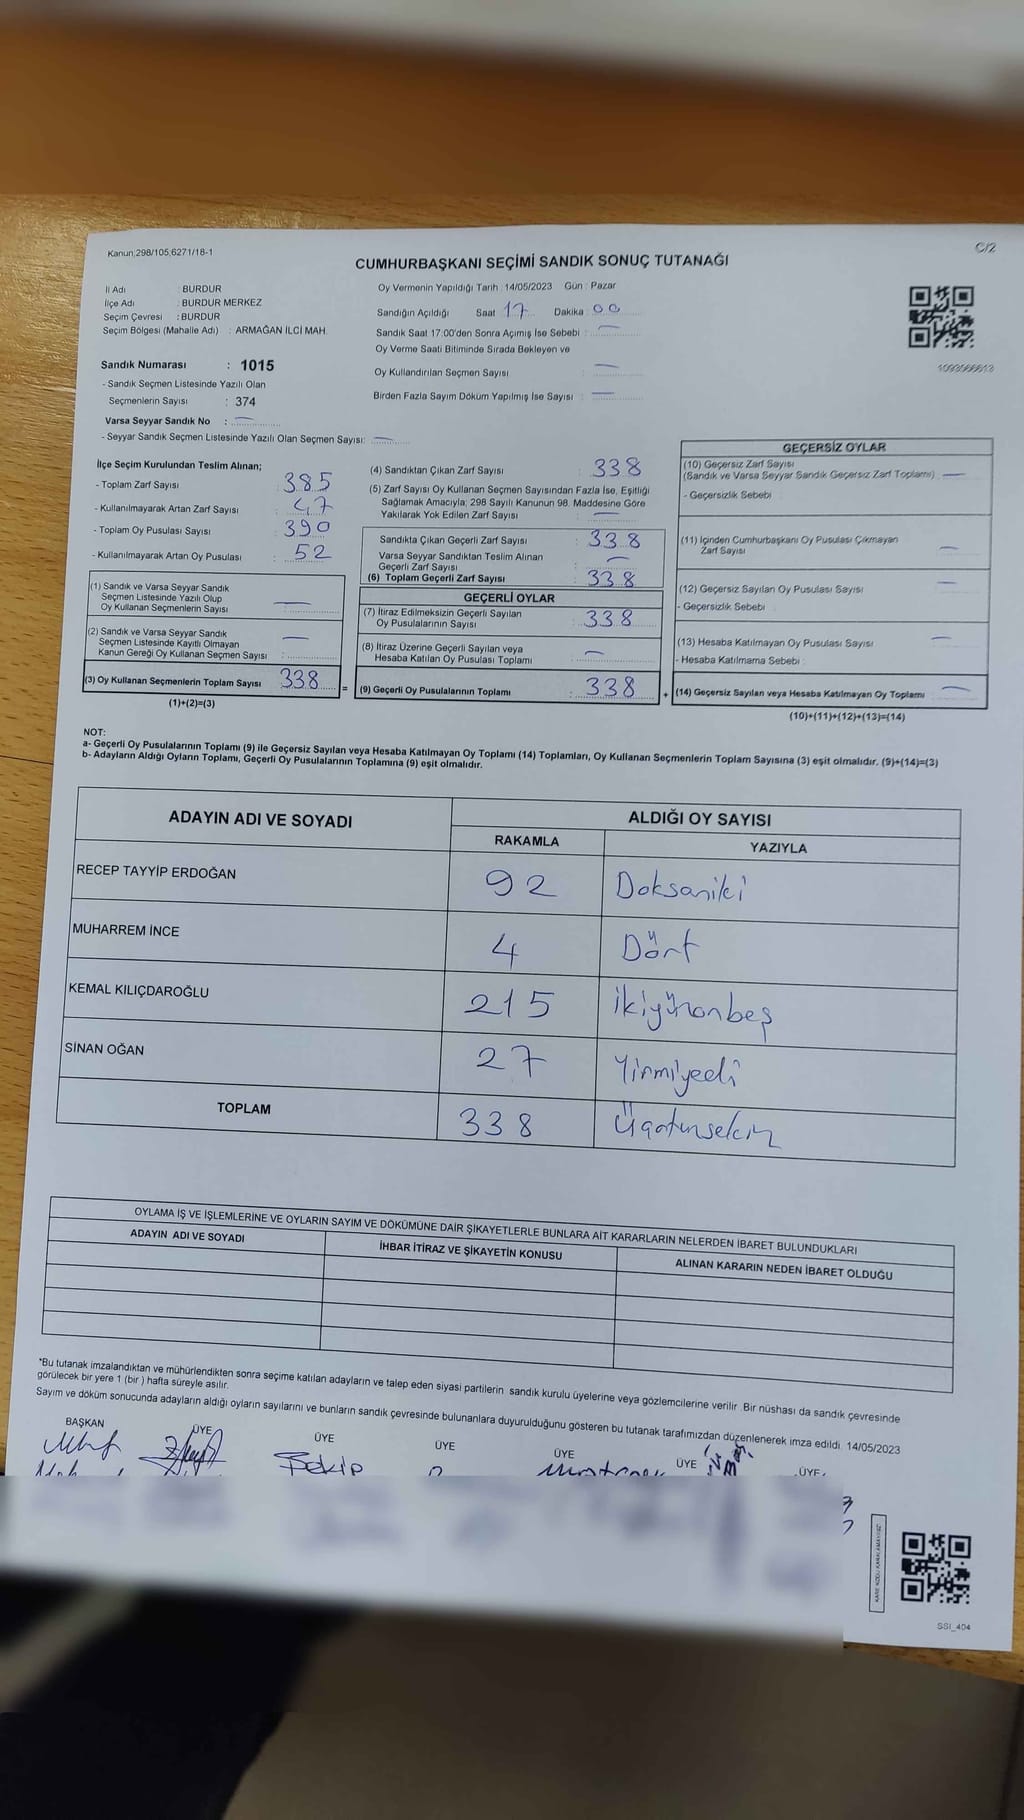 Kanun;298/105,6271/18-1
C/2
CUMHURBAŞKANI SEÇİMİ SANDIK SONUÇ TUTANAĞI
İl Adı : BURDUR
İlçe Adı : BURDUR MERKEZ
Seçim Çevresi : BURDUR
Seçim Bölgesi (Mahalle Adı) : ARMAĞAN İLCİ MAH.
Oy Vermenin Yapıldığı Tarih : 14/05/2023 Gün : Pazar
Sandığın Açıldığı Saat 17 Dakika 00
Sandık Saat 17:00'den Sonra Açımış İse Sebebi : —
Oy Verme Saati Bitiminde Sırada Bekleyen ve
Oy Kullandırılan Seçmen Sayısı : —
Birden Fazla Sayım Döküm Yapılmış İse Sayısı : —
1093566613
Sandık Numarası : 1015
- Sandık Seçmen Listesinde Yazılı Olan
Seçmenlerin Sayısı : 374
Varsa Seyyar Sandık No : —
- Seyyar Sandık Seçmen Listesinde Yazılı Olan Seçmen Sayısı: —
İlçe Seçim Kurulundan Teslim Alınan;
- Toplam Zarf Sayısı : 385
- Kullanılmayarak Artan Zarf Sayısı : 47
- Toplam Oy Pusulası Sayısı : 390
- Kullanılmayarak Artan Oy Pusulası : 52
(1) Sandık ve Varsa Seyyar Sandık
Seçmen Listesinde Yazılı Olup
Oy Kullanan Seçmenlerin Sayısı : —
(2) Sandık ve Varsa Seyyar Sandık
Seçmen Listesinde Kayıtlı Olmayan
Kanun Gereği Oy Kullanan Seçmen Sayısı : —
(3) Oy Kullanan Seçmenlerin Toplam Sayısı : 338
(1)+(2)=(3)
(4) Sandıktan Çıkan Zarf Sayısı : 338
(5) Zarf Sayısı Oy Kullanan Seçmen Sayısından Fazla İse, Eşitliği
Sağlamak Amacıyla; 298 Sayılı Kanunun 98. Maddesine Göre
Yakılarak Yok Edilen Zarf Sayısı : —
Sandıkta Çıkan Geçerli Zarf Sayısı : 338
Varsa Seyyar Sandıktan Teslim Alınan
Geçerli Zarf Sayısı : —
(6) Toplam Geçerli Zarf Sayısı : 338
GEÇERLİ OYLAR
(7) İtiraz Edilmeksizin Geçerli Sayılan
Oy Pusulalarının Sayısı : 338
(8) İtiraz Üzerine Geçerli Sayılan veya
Hesaba Katılan Oy Pusulası Toplamı : —
= (9) Geçerli Oy Pusulalarının Toplamı : 338 +
GEÇERSİZ OYLAR
(10) Geçersiz Zarf Sayısı
(Sandık ve Varsa Seyyar Sandık Geçersiz Zarf Toplamı) —
- Geçersizlik Sebebi
(11) İçinden Cumhurbaşkanı Oy Pusulası Çıkmayan —
Zarf Sayısı
(12) Geçersiz Sayılan Oy Pusulası Sayısı —
- Geçersizlik Sebebi
(13) Hesaba Katılmayan Oy Pusulası Sayısı —
- Hesaba Katılmama Sebebi
(14) Geçersiz Sayılan veya Hesaba Katılmayan Oy Toplamı —
(10)+(11)+(12)+(13)=(14)
NOT:
a- Geçerli Oy Pusulalarının Toplamı (9) ile Geçersiz Sayılan veya Hesaba Katılmayan Oy Toplamı (14) Toplamları, Oy Kullanan Seçmenlerin Toplam Sayısına (3) eşit olmalıdır. (9)+(14)=(3)
b- Adayların Aldığı Oyların Toplamı, Geçerli Oy Pusulalarının Toplamına (9) eşit olmalıdır.
ADAYIN ADI VE SOYADI
ALDIĞI OY SAYISI
RAKAMLA YAZIYLA
RECEP TAYYİP ERDOĞAN 92 Doksaniki
MUHARREM İNCE 4 Dört
KEMAL KILIÇDAROĞLU 215 ikiyüzonbeş
SİNAN OĞAN 27 Yirmiyedi
TOPLAM 338
OYLAMA İŞ VE İŞLEMLERİNE VE OYLARIN SAYIM VE DÖKÜMÜNE DAİR ŞİKAYETLERLE BUNLARA AİT KARARLARIN NELERDEN İBARET BULUNDUKLARI
ADAYIN ADI VE SOYADI İHBAR İTİRAZ VE ŞİKAYETİN KONUSU ALINAN KARARIN NEDEN İBARET OLDUĞU
*Bu tutanak imzalandıktan ve mühürlendikten sonra seçime katılan adayların ve talep eden siyasi partilerin sandık kurulu üyelerine veya gözlemcilerine verilir. Bir nüshası da sandık çevresinde
görülecek bir yere 1 (bir ) hafta süreyle asılır.
Sayım ve döküm sonucunda adayların aldığı oyların sayılarını ve bunların sandık çevresinde bulunanlara duyurulduğunu gösteren bu tutanak tarafımızdan düzenlenerek imza edildi. 14/05/2023
BAŞKAN ÜYE ÜYE ÜYE ÜYE ÜYE ÜYE
Bekip
SSI_404